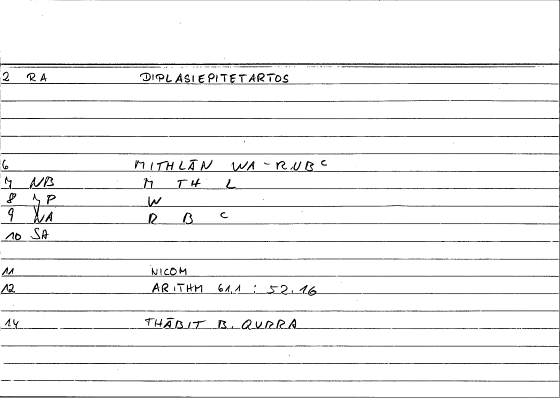 2 RA DIPLASIEPITETARTOS
6 MITHLĀN WA-RUBC
7 NB M TH L
8 VP W
9 NA R B C
10 SA
11 NICOM
12 ARITHM 61,1 : 52,16
14 THĀBIT B. QURRA